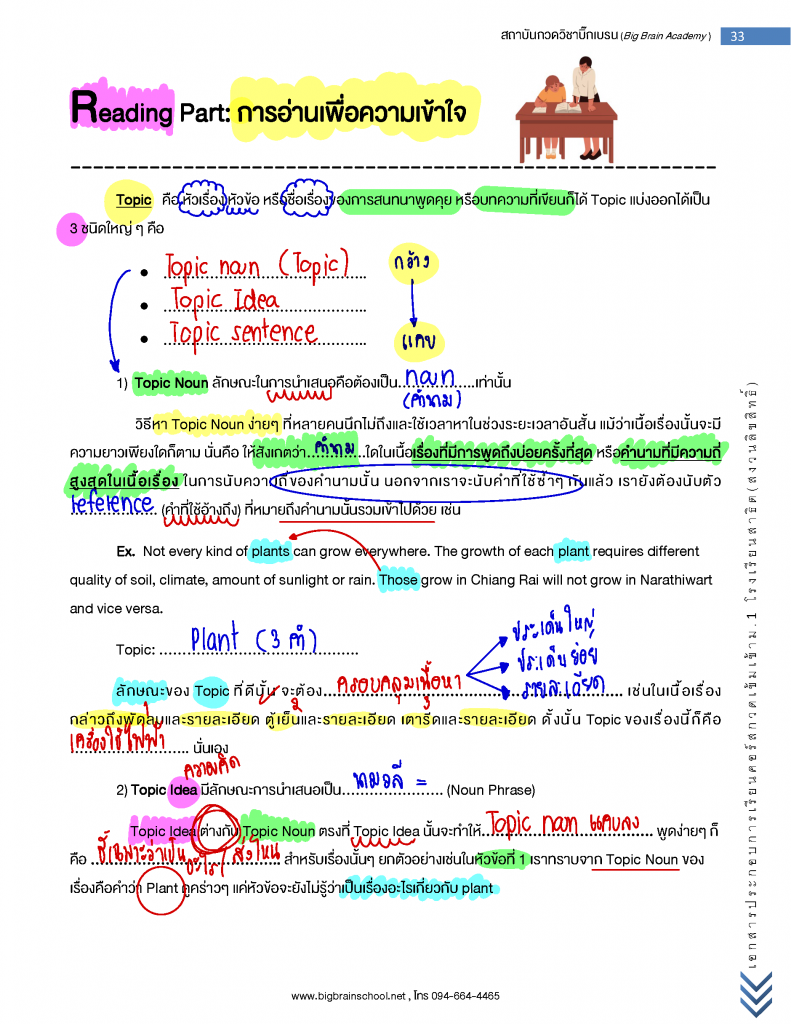 สถาบันกวดวิชาบิ๊กเบรน (Big Brain Academy) 33
Reading Part: การอ่านเพื่อความเข้าใจ
Topic คือ หัวเรื่อง หัวข้อ หรือชื่อเรื่องของการสนทนาพูดคุย หรือบทความที่เขียนก็ได้ Topic แบ่งออกได้เป็น
3 ชนิดใหญ่ ๆ คือ
• Topic noun (Topic) กว้าง
• Topic Idea
• Topic sentence แคบ
1) Topic Noun ลักษณะในการนำเสนอคือต้องเป็น...noun...เท่านั้น
(คำนาม)
วิธีหา Topic Noun ง่ายๆ ที่หลายคนนึกไม่ถึงและใช้เวลาหาในช่วงระยะเวลาอันสั้น แม้ว่าเนื้อเรื่องนั้นจะมี
ความยาวเพียงใดก็ตาม นั่นคือ ให้สังเกตว่า...คำนาม...ใดในเนื้อเรื่องที่มีการพูดถึงบ่อยครั้งที่สุด หรือคำนามที่มีความถี่
สูงสุดในเนื้อเรื่อง ในการนับความถี่ของคำนามนั้น นอกจากเราจะนับคำที่ใช้ซ้ำๆ กันแล้ว เรายังต้องนับตัว
reference (คำที่ใช้อ้างถึง) ที่หมายถึงคำนามนั้นรวมเข้าไปด้วย เช่น
Ex. Not every kind of plants can grow everywhere. The growth of each plant requires different
quality of soil, climate, amount of sunlight or rain. Those grow in Chiang Rai will not grow in Narathiwart
and vice versa.
Topic: Plant (3 คำ)
ประเด็นใหญ่
ประเด็นย่อย
รายละเอียด
ลักษณะของ Topic ที่ดีนั้น จะต้อง...ครอบคลุมเนื้อหา... เช่นในเนื้อเรื่อง
กล่าวถึงพัดลมและรายละเอียด ตู้เย็นและรายละเอียด เตารีดและรายละเอียด ดั้งนั้น Topic ของเรื่องนี้ก็คือ
เครื่องใช้ไฟฟ้า นั่นเอง
ความคิด
2) Topic Idea มีลักษณะการนำเสนอเป็น...นามวลี =... (Noun Phrase)
Topic Idea ต่างกับ Topic Noun ตรงที่ Topic Idea นั้นจะทำให้...Topic noun แคบลง... พูดง่ายๆ ก็
คือ ...ชี้เฉพาะว่าเป็นอะไร สิ่งไหน... สำหรับเรื่องนั้นๆ ยกตัวอย่างเช่นในหัวข้อที่ 1 เราทราบจาก Topic Noun ของ
เรื่องคือคำว่า Plant ดูคร่าวๆ แค่หัวข้อจะยังไม่รู้ว่าเป็นเรื่องอะไรเกี่ยวกับ plant
เอกสารประกอบการเรียนคอร์สกวดเข้มเข้าม.1 โรงเรียนสาธิต(สงวนลิขสิทธิ์)
www.bigbrainschool.net , โทร 094-664-4465